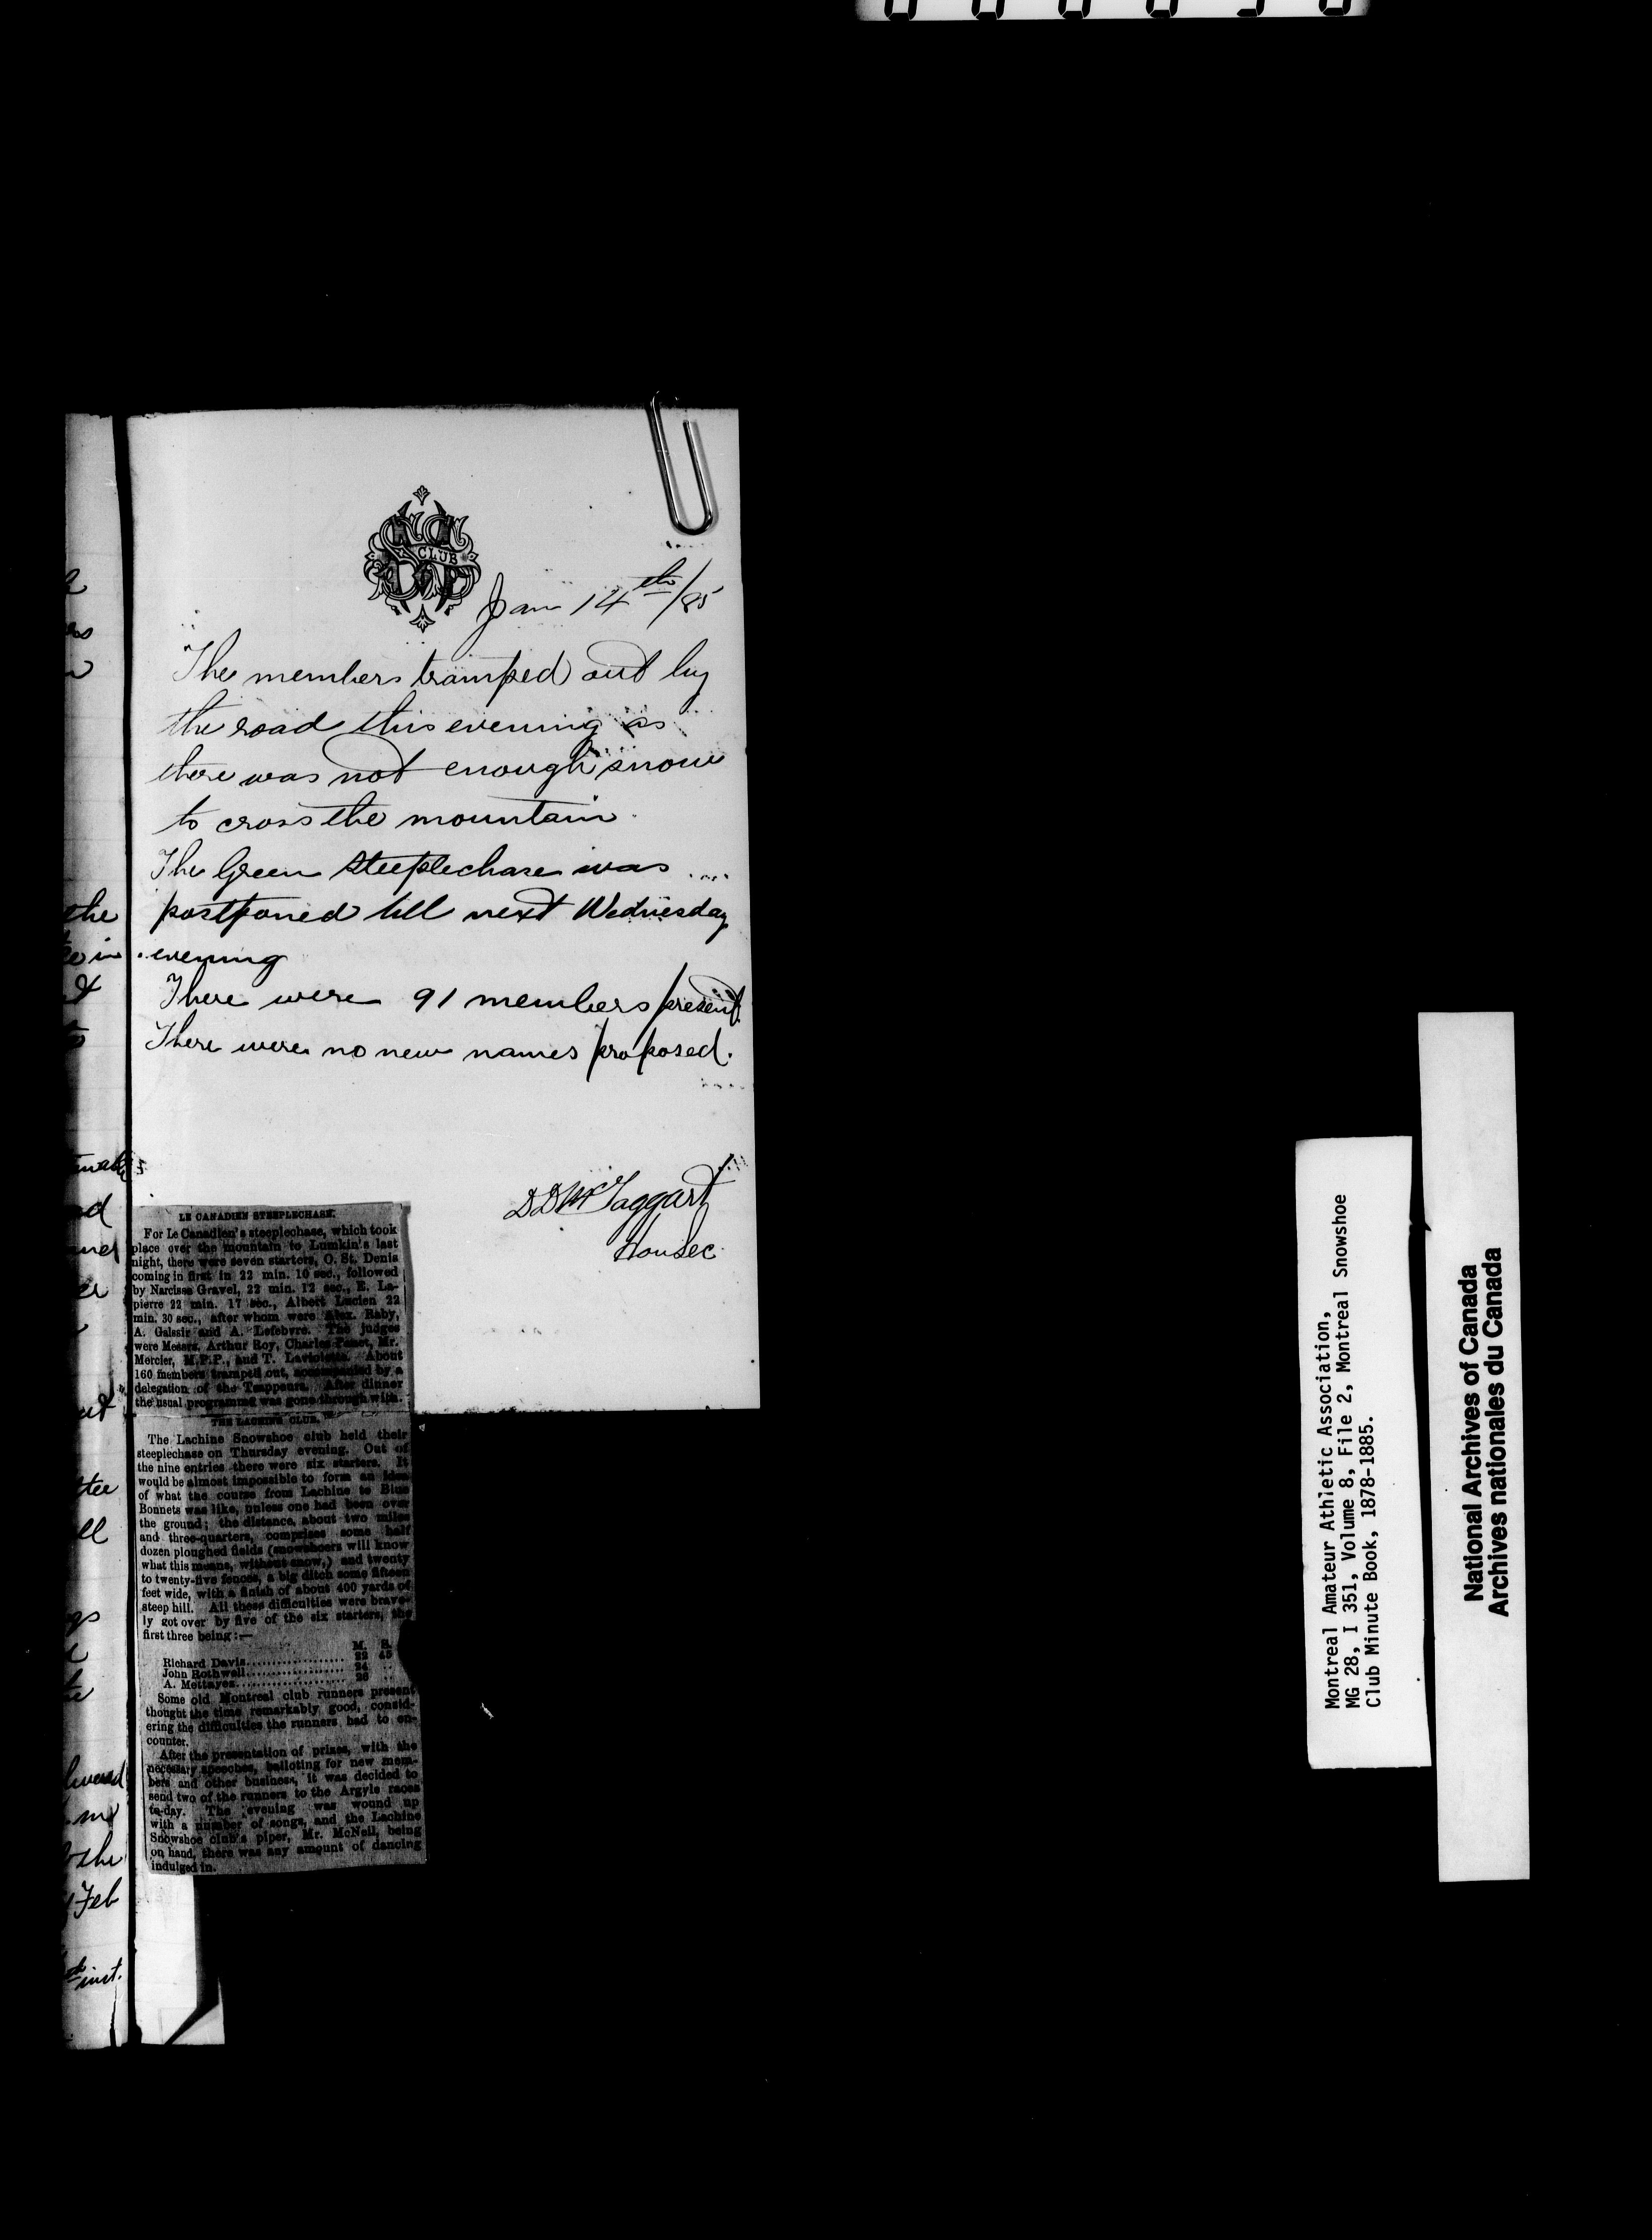 CLUB
Jan 14th/85
The members tramped out by
the road this evening as
there was not enough snow
to cross the mountain.
The Green Steeplechase was
postponed till next Wednesday
evening
There were 91 members present.
There were no new names proposed.
DD McTaggart
Hon Sec
LE CANADIEN STEEPLECHASE.
For Le Canadien's steeplechase, which took
place over the mountain to Lumkin's last
night, there were seven starters, O. St. Denis
coming in first in 22 min. 10 sec., followed
by Narcisse Gravel, 22 min. 12 sec., E. La-
pierre 22 min. 17 sec., Albert Lucien 22
min. 30 sec., after whom were Alex. Raby,
A. Galssir and A. Lefebvre. The judges
were Messrs. Arthur Roy, Charles Mr.
Mercier, M.P.P., and T. About
160 members tramped out, accompanied by a
delegation of the Trappeurs. After dinner
the usual programme was gone through with.
THE LACHINE CLUB.
The Lachine Snowshoe club held their
steeplechase on Thursday evening. Out of
the nine entries there were six starters. It
would be almost impossible to form an idea
of what the course from Lachine to Blue
Bonnets was like, unless one had been over
the ground; the distance, about two miles
and three-quarters, comprises some half
dozen ploughed fields (snowshoers will know
what this means, without snow,) and twenty
to twenty-five fences, a big ditch some fifteen
feet wide, with a finish of about 400 yards of
steep hill. All these difficulties were brave-
ly got over by five of the six starters, the
first three being:—
M. S.
Richard Davis.................... 22 45
John Rothwell.................... 24 ..
A. Mettayes.................... 26 ..
Some old Montreal club runners present
thought the time remarkably good, consid-
ering the difficulties the runners had to en-
counter.
After the presentation of prizes, with the
necessary speeches, balloting for new mem-
bers and other business, it was decided to
send two of the runners to the Argyle races
to-day. The evening was wound up
with a number of songs, and the Lachine
Snowshoe club's piper, Mr. McNeil, being
on hand, there was any amount of dancing
indulged in.
the
in
and
tee
ll
me
the
Feb
inst.
Montreal Amateur Athletic Association,
MG 28, I 351, Volume 8, File 2, Montreal Snowshoe
Club Minute Book, 1878-1885.
National Archives of Canada
Archives nationales du Canada